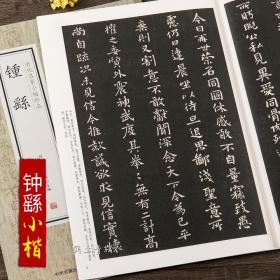 公私見
今日再世榮名同國休慼敢不自量竊致愚
慮仍日達晨坐以待旦退思鄙淺聖意所
棄則又割意不敢獻聞深念天下今為已平
權之委質外震神武度其拳拳無有二計高
尚自疏況未見信今推款誠欲求見信實懷
鍾繇
钟繇小楷